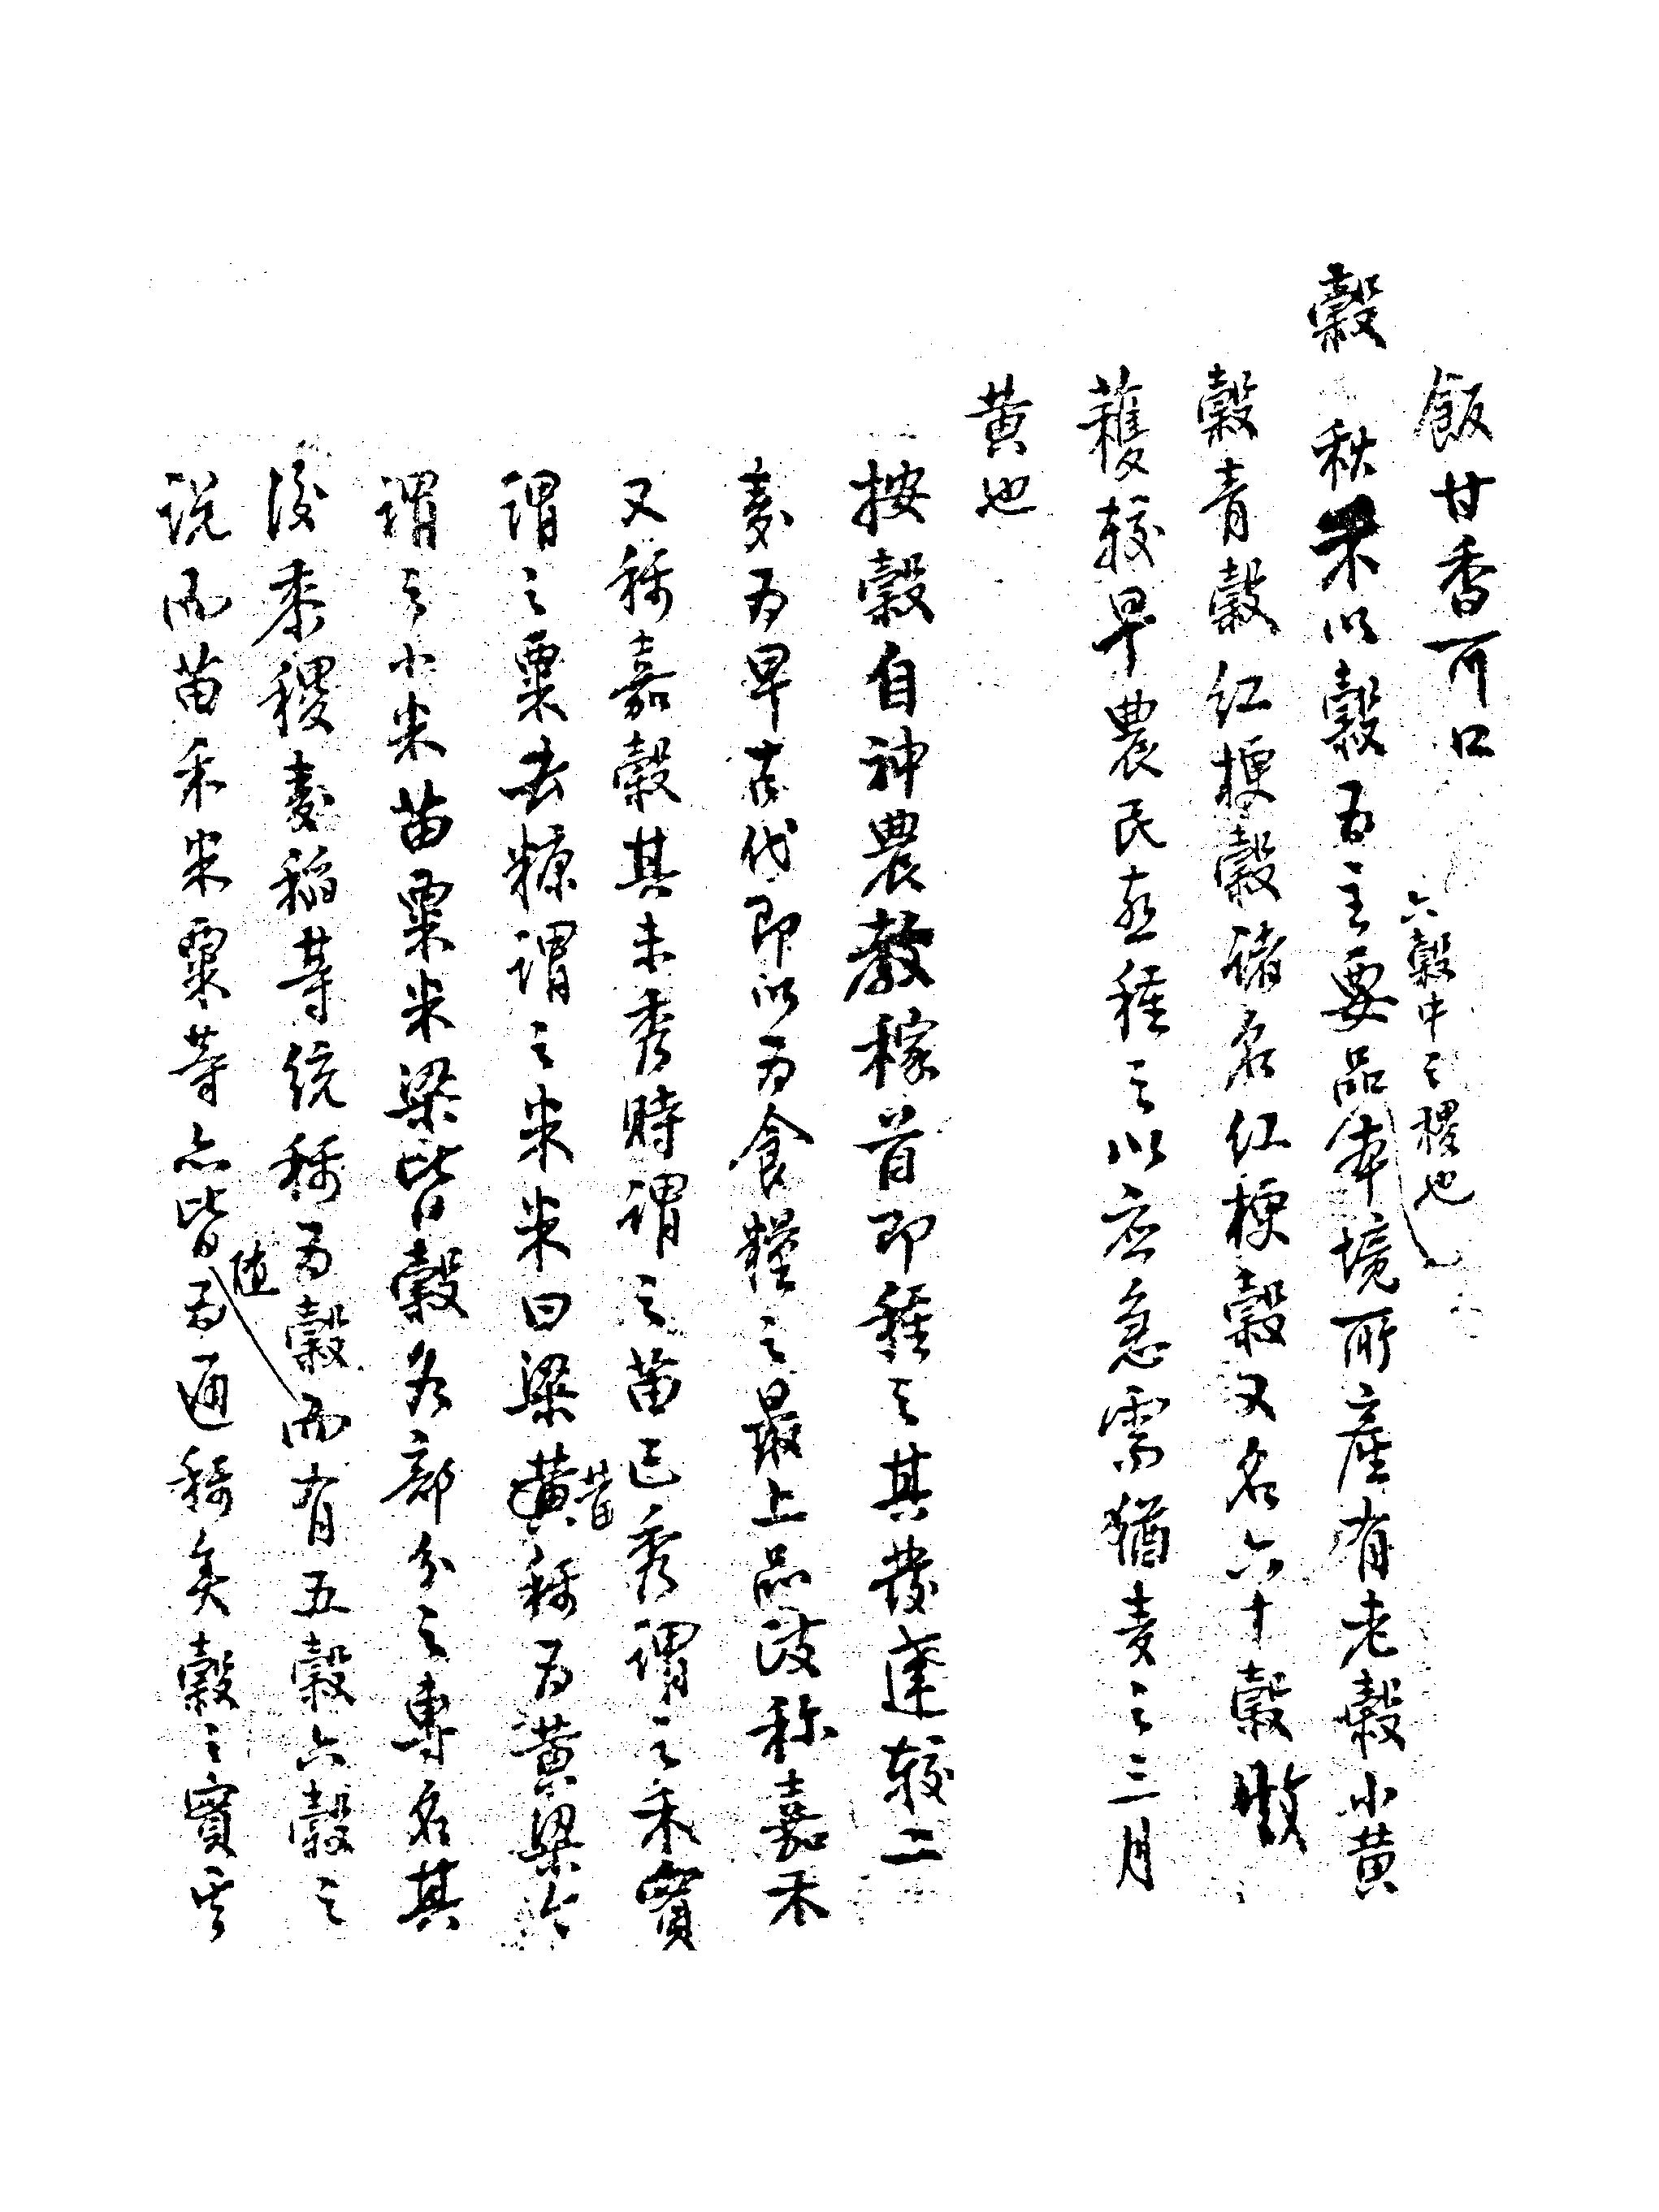 飯甘香可口
六穀中之稷也
穀 秋禾以穀為主要品本境所產有老穀小黃
穀青穀紅梗穀諸名紅梗穀又名六十穀收
穫較早農民亟種之以应急需猶麦之三月
黃也
按穀自神農教稼首即種之其發達較二
麦为早古代即以为食糧之最上品故称嘉禾
又稱嘉穀其未秀時謂之苗已秀謂之禾實
謂之粟去糠謂之米米曰粱昔稱为黃粱今
謂之小米苗粟米粱皆穀各部分之專名其
後黍稷麦稻等統稱为穀而有五穀六穀之
说而苗禾米粟等亦皆随为通稱矣穀之實